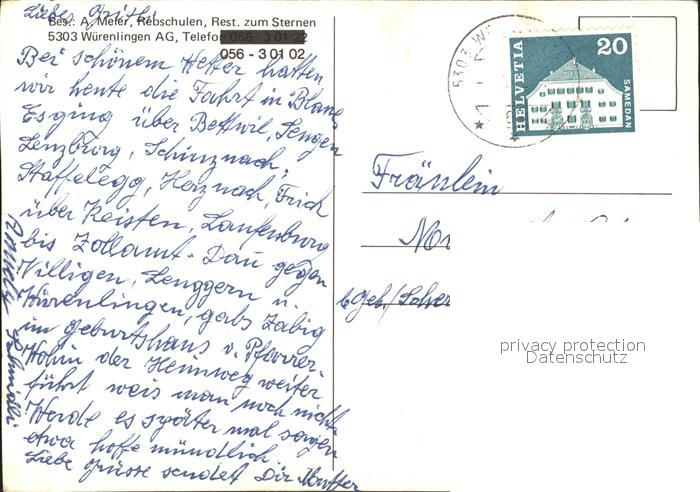 Bes.: A. Meier, Rebschulen, Rest. zum Sternen
5303 Würenlingen AG, Telefon 056 - 3 01 22
056 - 3 01 02
Bei schönem Wetter hatten
wir heute die Fahrt in Blaue
Es ging über Bettwil, Sengen
Lenzburg, Schinznach,
Staffelegg, Herznach, Frick
über Keisten, Laufenburg
bis Zollamt. Dan gegen
Villigen, Lenggern u.
Würenlingen, gabs Zabig
im Geburtshaus v. Pfarrer.
Wohin der Heimweg weiter
führt weis man noch nicht
Werde es später mal sagen
etwa hoffe mündlich.
Liebe Grüsse sendet Dir Mutter
HELVETIA
20
SAMEDAN
5303 W
Fräulein
b. Geb/
privacy protection
Datenschutz